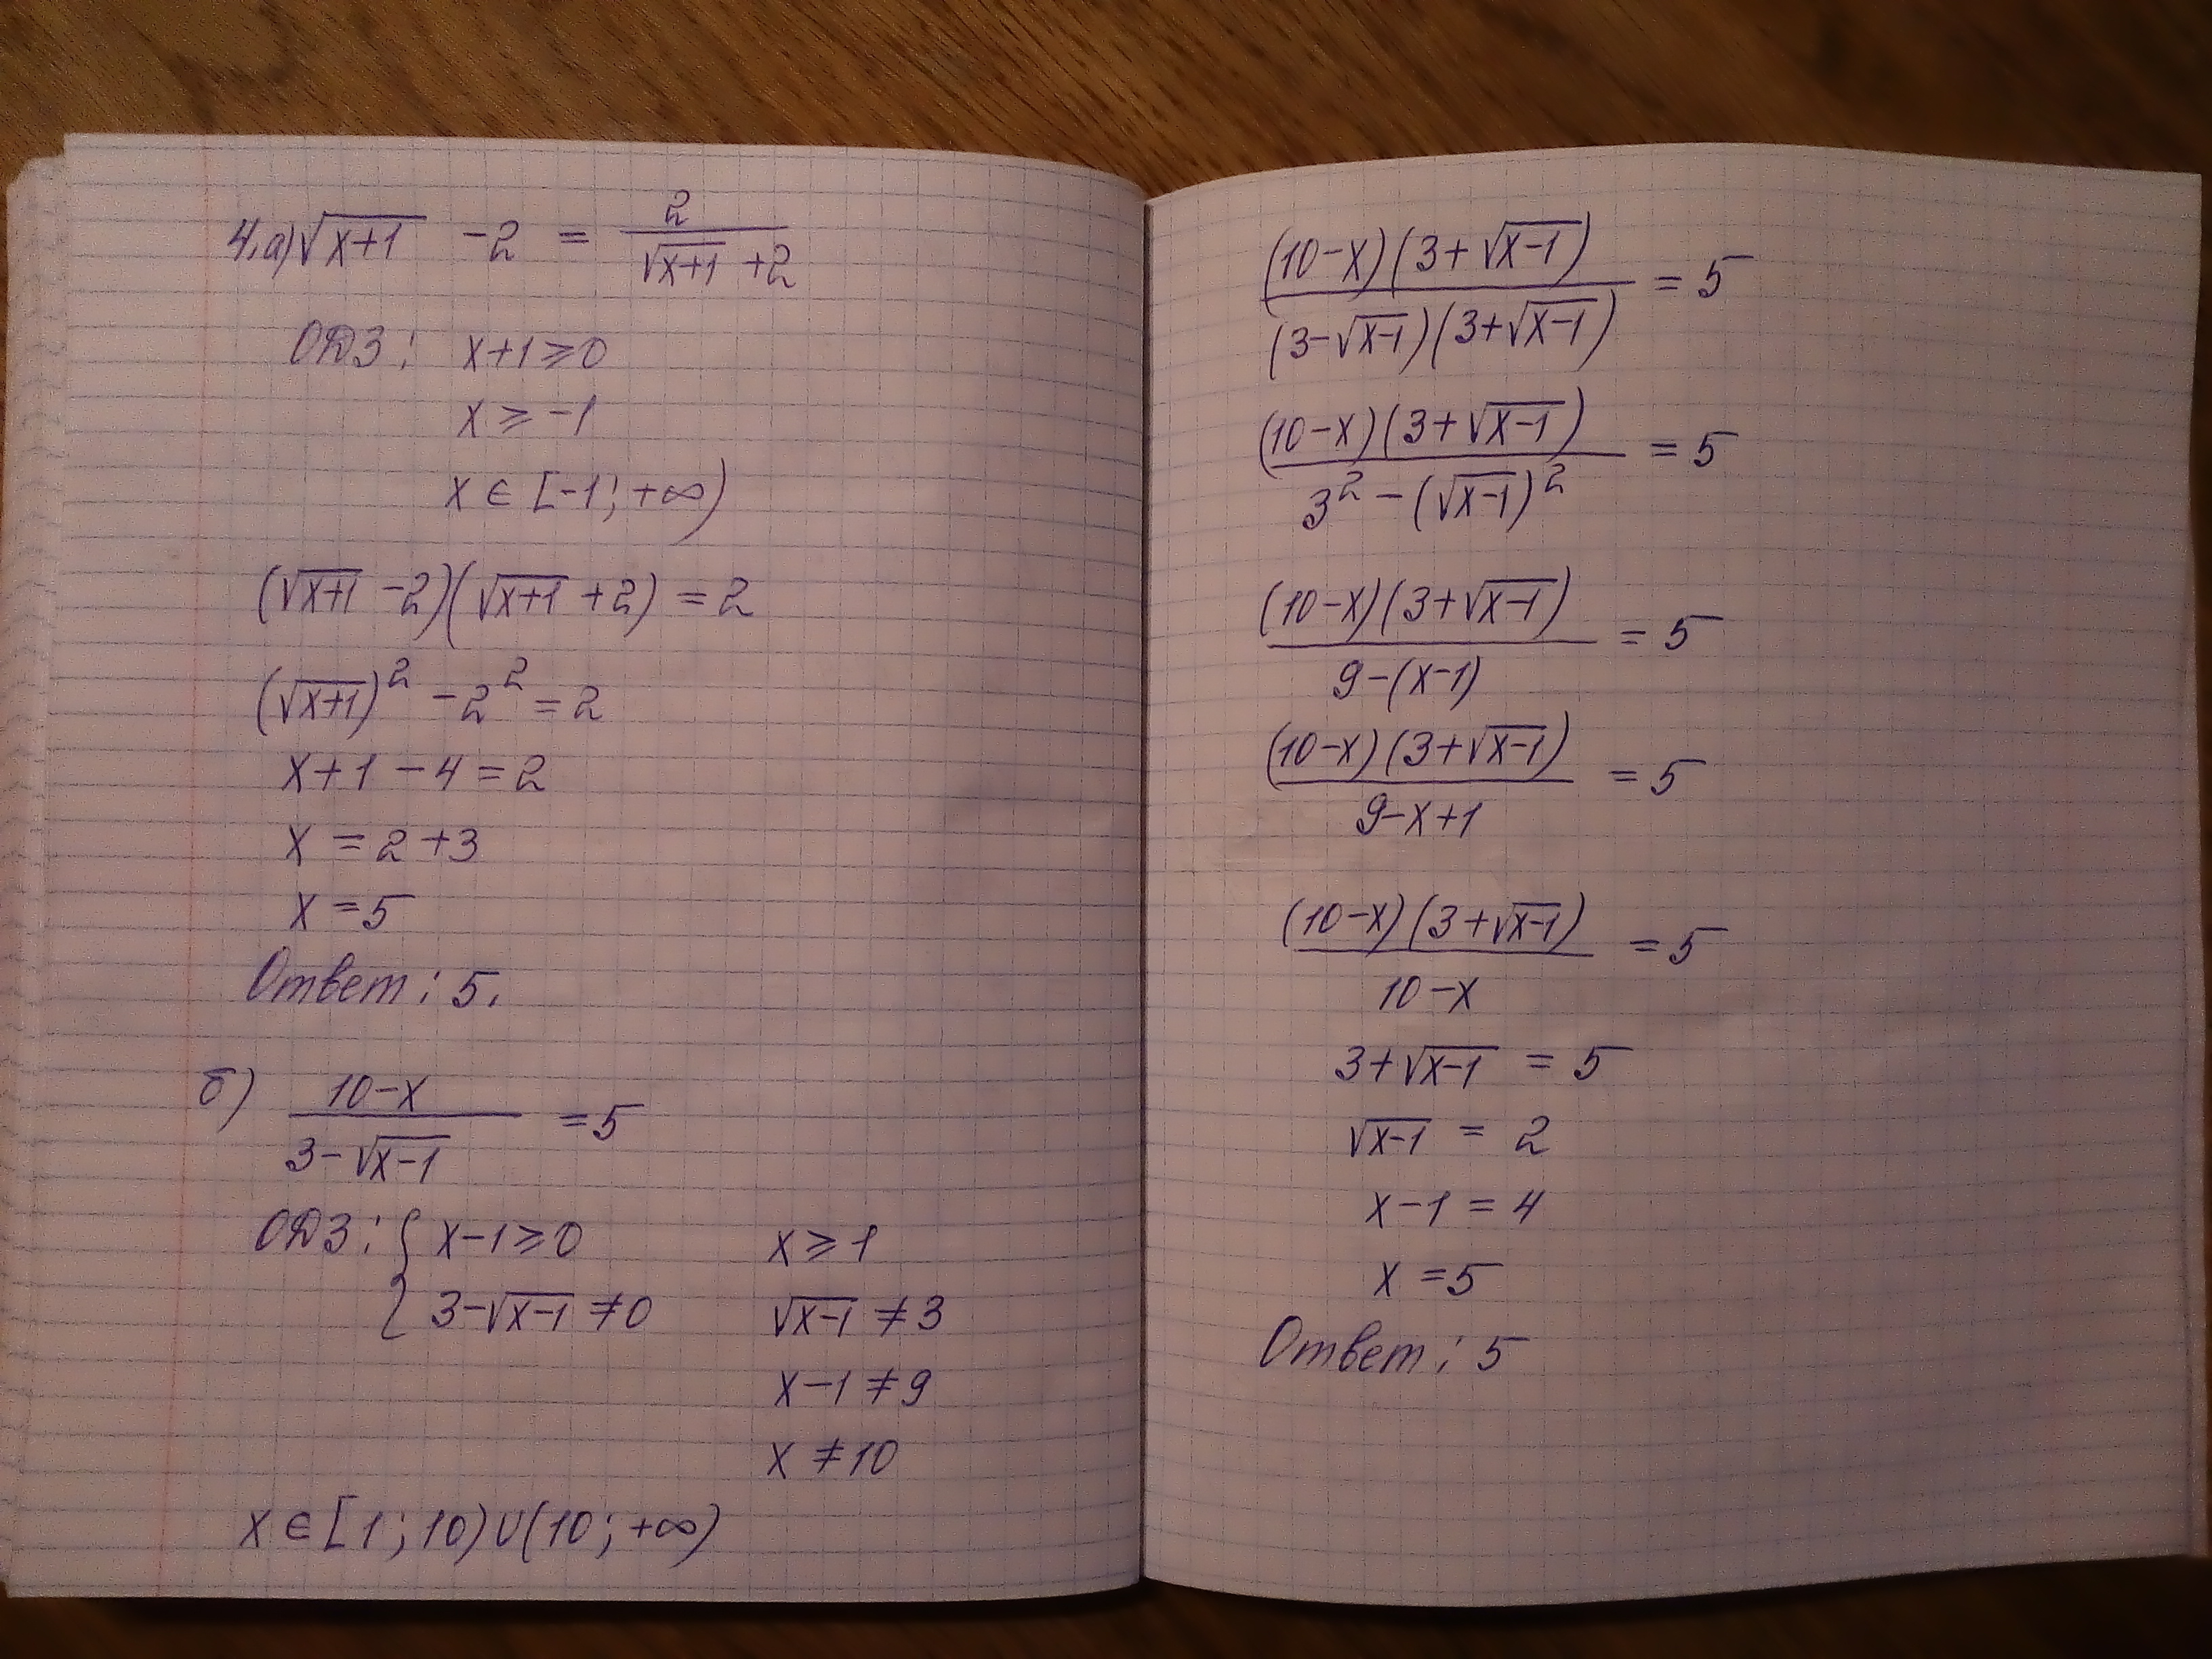 4.а) √(x+1) - 2 = 2/(√(x+1) + 2)
ОДЗ: x+1 ⩾ 0
x ⩾ -1
x ∈ [-1; +∞)
(√(x+1) - 2)(√(x+1) + 2) = 2
(√(x+1))² - 2² = 2
x + 1 - 4 = 2
x = 2 + 3
x = 5
Ответ: 5.
б) (10-x)/(3-√(x-1)) = 5
ОДЗ: { x-1 ⩾ 0 x ⩾ 1
3-√(x-1) ≠ 0 √(x-1) ≠ 3
x-1 ≠ 9
x ≠ 10
x ∈ [1; 10) ∪ (10; +∞)
(10-x)(3+√(x-1))/((3-√(x-1))(3+√(x-1))) = 5
(10-x)(3+√(x-1))/(3² - (√(x-1))²) = 5
(10-x)(3+√(x-1))/(9-(x-1)) = 5
(10-x)(3+√(x-1))/(9-x+1) = 5
(10-x)(3+√(x-1))/(10-x) = 5
3+√(x-1) = 5
√(x-1) = 2
x-1 = 4
x = 5
Ответ: 5